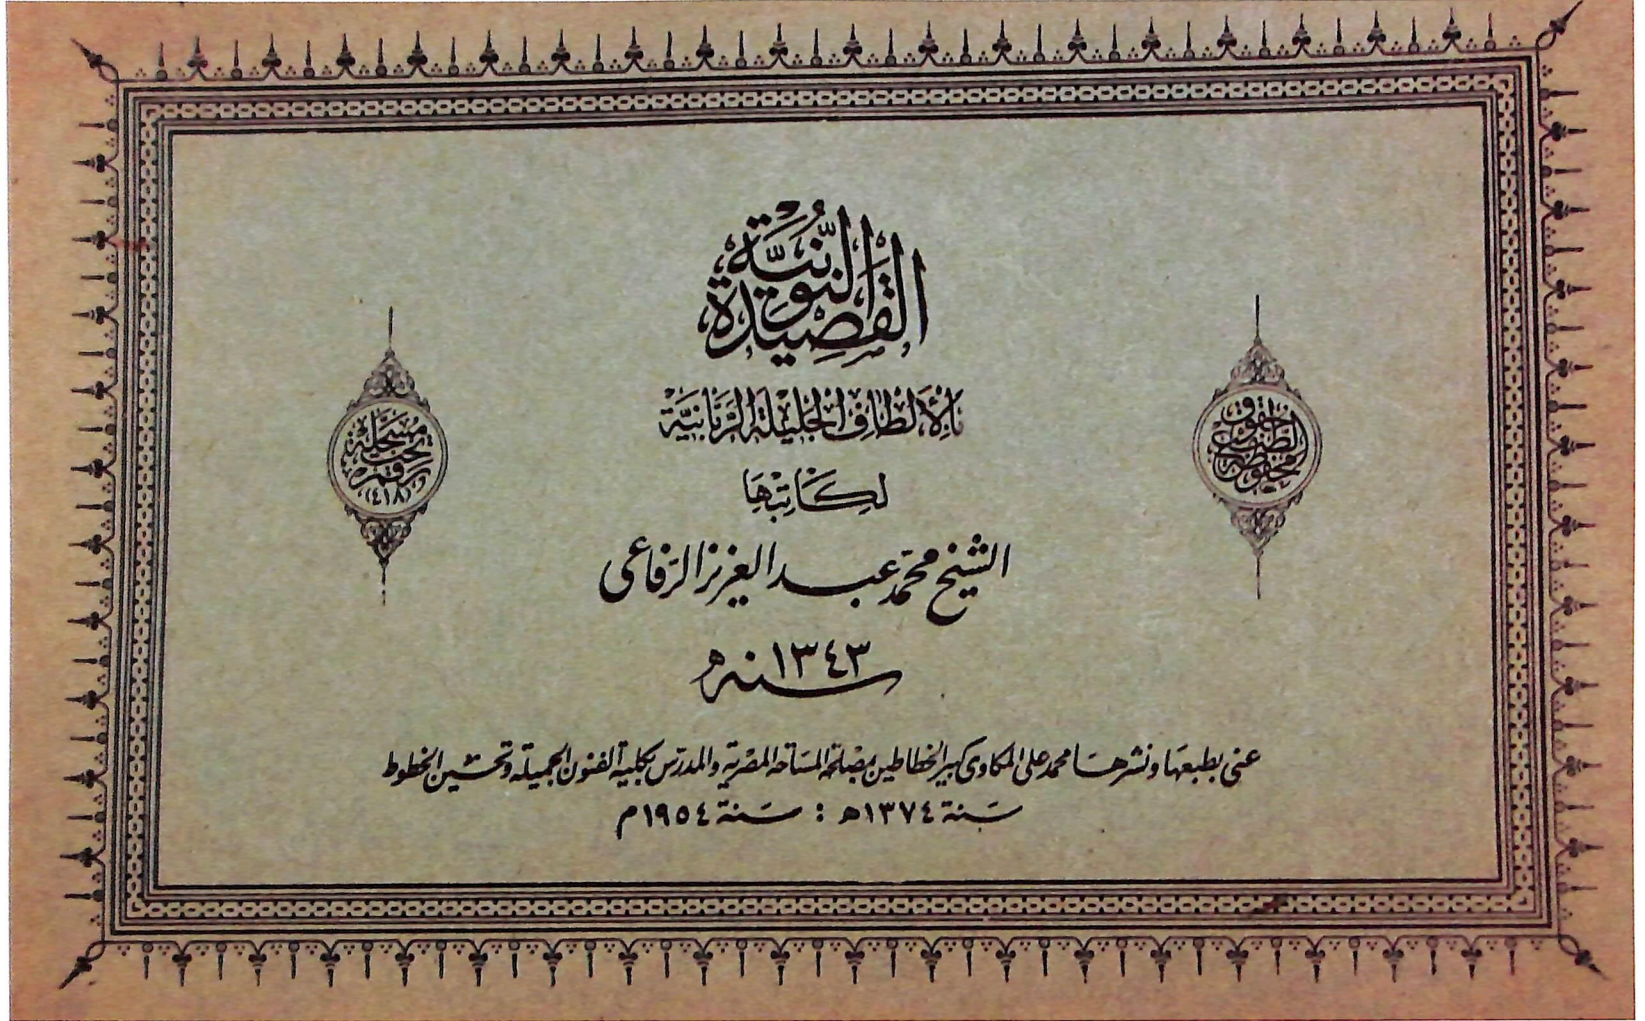 القَصِيدَةُ النُّونِيَّةُ
بِالأَلْطَافِ الجَلِيلَةِ الرَّبَّانِيَّة
لِكَاتِبِهَا
الشيخ محمد عبد العزيز الرفاعى
سنة ١٣٤٣ ه
حقوق الطبع محفوظة
مسجلة تحت رقم (٤١٨)
عنى بطبعها ونشرها محمد على المكاوى كبير الخطاطين بمصلحة المساحة المصرية والمدرس بكلية الفنون الجميلة وتحسين الخطوط
سنة ١٣٧٤ ه : سنة ١٩٥٤ م